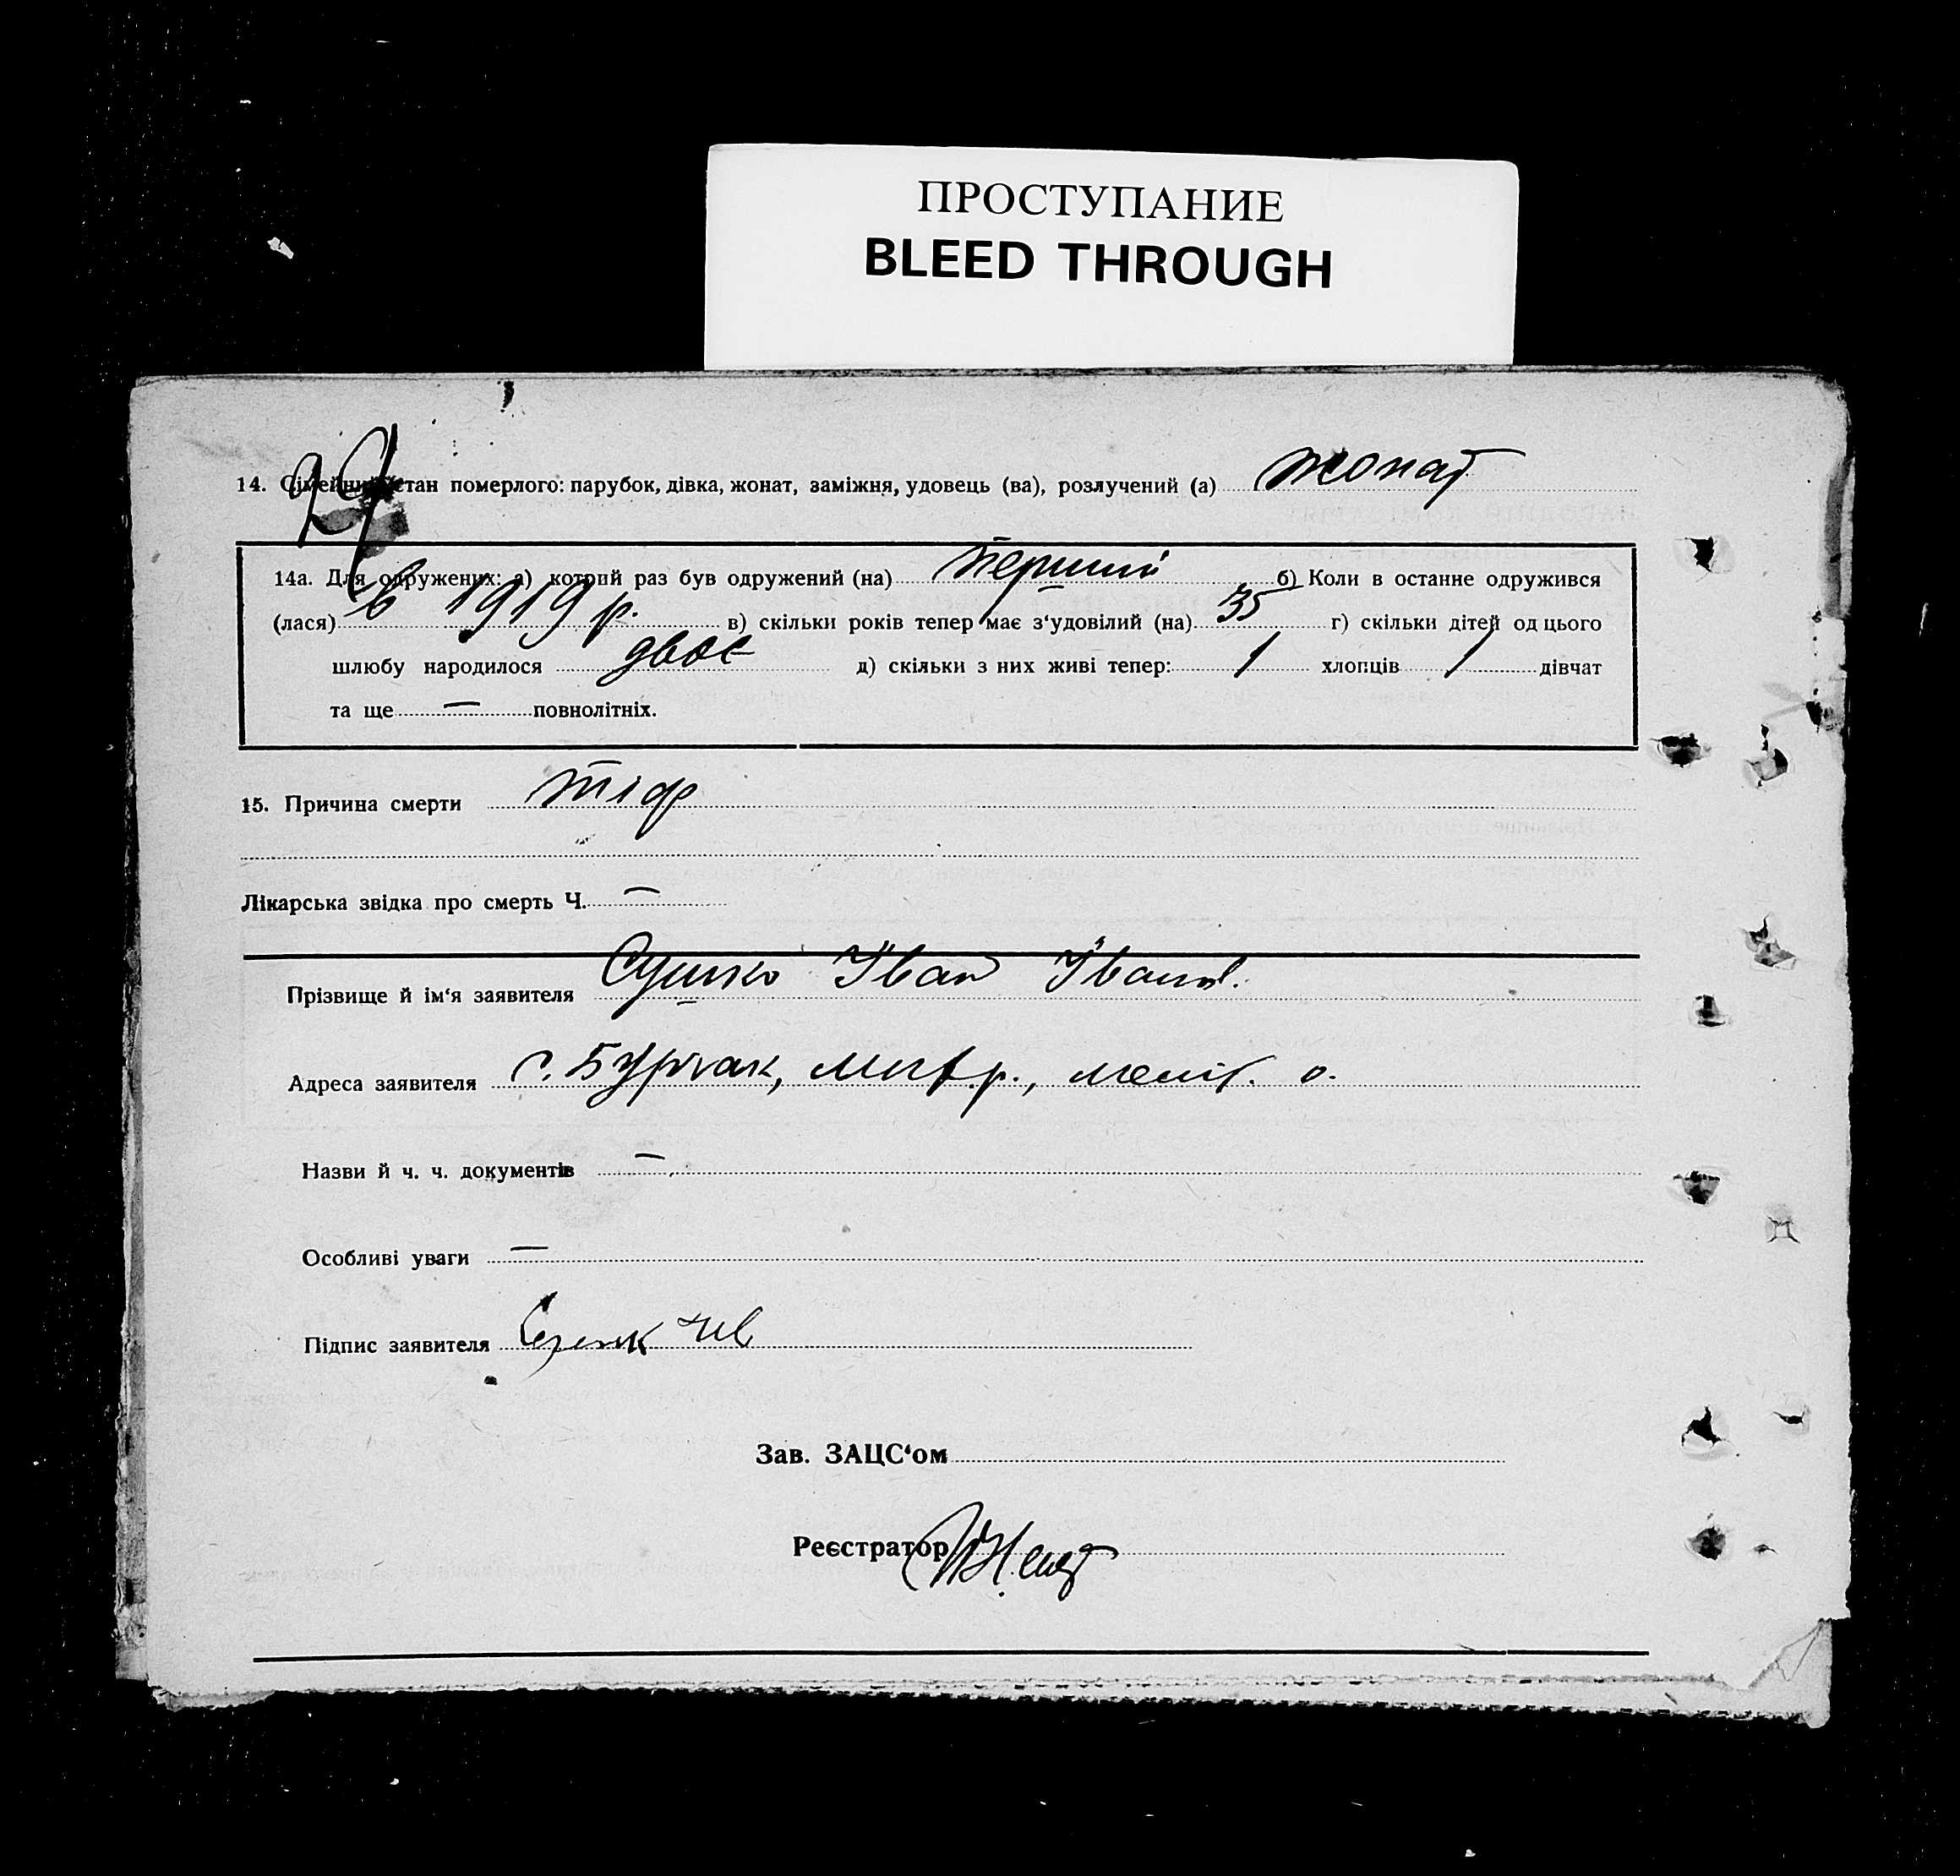 ПРОСТУПАНИЕ
BLEED THROUGH
14. Сімейний стан померлого: парубок, дівка, жонат, заміжня, удовець (ва), розлучений (а) жонат
14а. Для одружених: а) котрий раз був одружений (на) перший б) Коли в останне одружився
(лася) в 1919 р. в) скільки років тепер має з‘удовілий (на) 35 г) скільки дітей од цього
шлюбу народилося двоє д) скільки з них живі тепер: 1 хлопців 1 дівчат
та ще — повнолітніх.
15. Причина смерти тіф
Лікарська звідка про смерть Ч. —
Прізвище й ім‘я заявителя Сушко Іван Іванов.
Адреса заявителя с. Бурчак, р., меліт. о.
Назви й ч. ч. документів —
Особливі уваги —
Підпис заявителя
Зав. ЗАЦС‘ом
Реєстратор